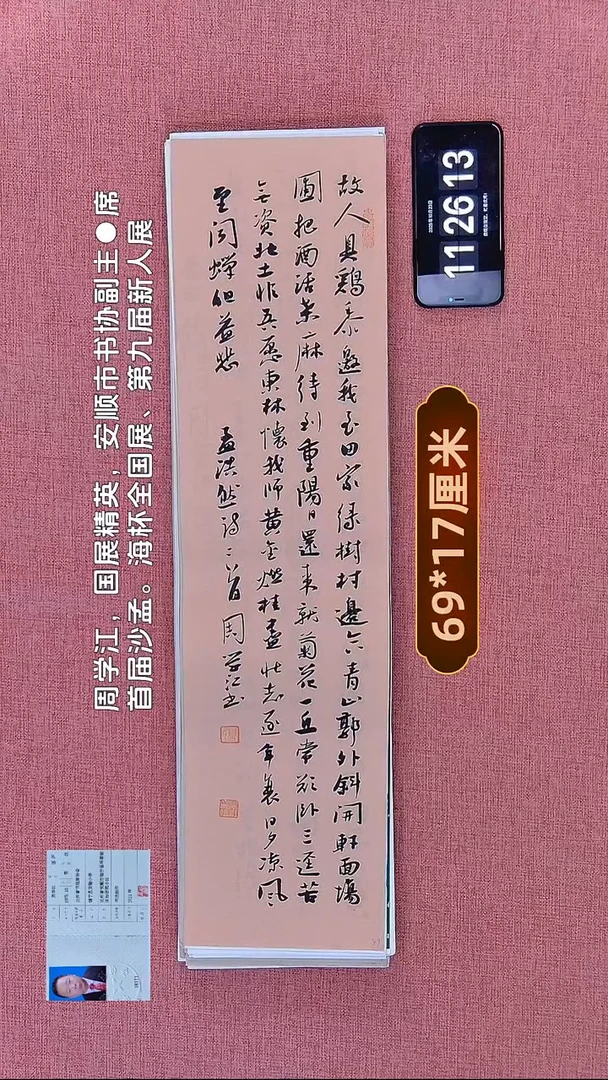 周学江，国展精英，安顺市书协副主●席
首届沙孟。海杯全国展、第九届新人展
故人具鷄黍邀我至田家绿樹村邊合青山郭外斜開軒面場
圃把酒话桑麻待到重陽日還来就菊花一丘常欲卧三逕苦
無资北土非吾愿東林懷我师黄金燃桂盡壮志逐年衰日夕凉風
至闻蟬但益悲 孟浩然诗二首 周学江书
11 26 13
69*17厘米